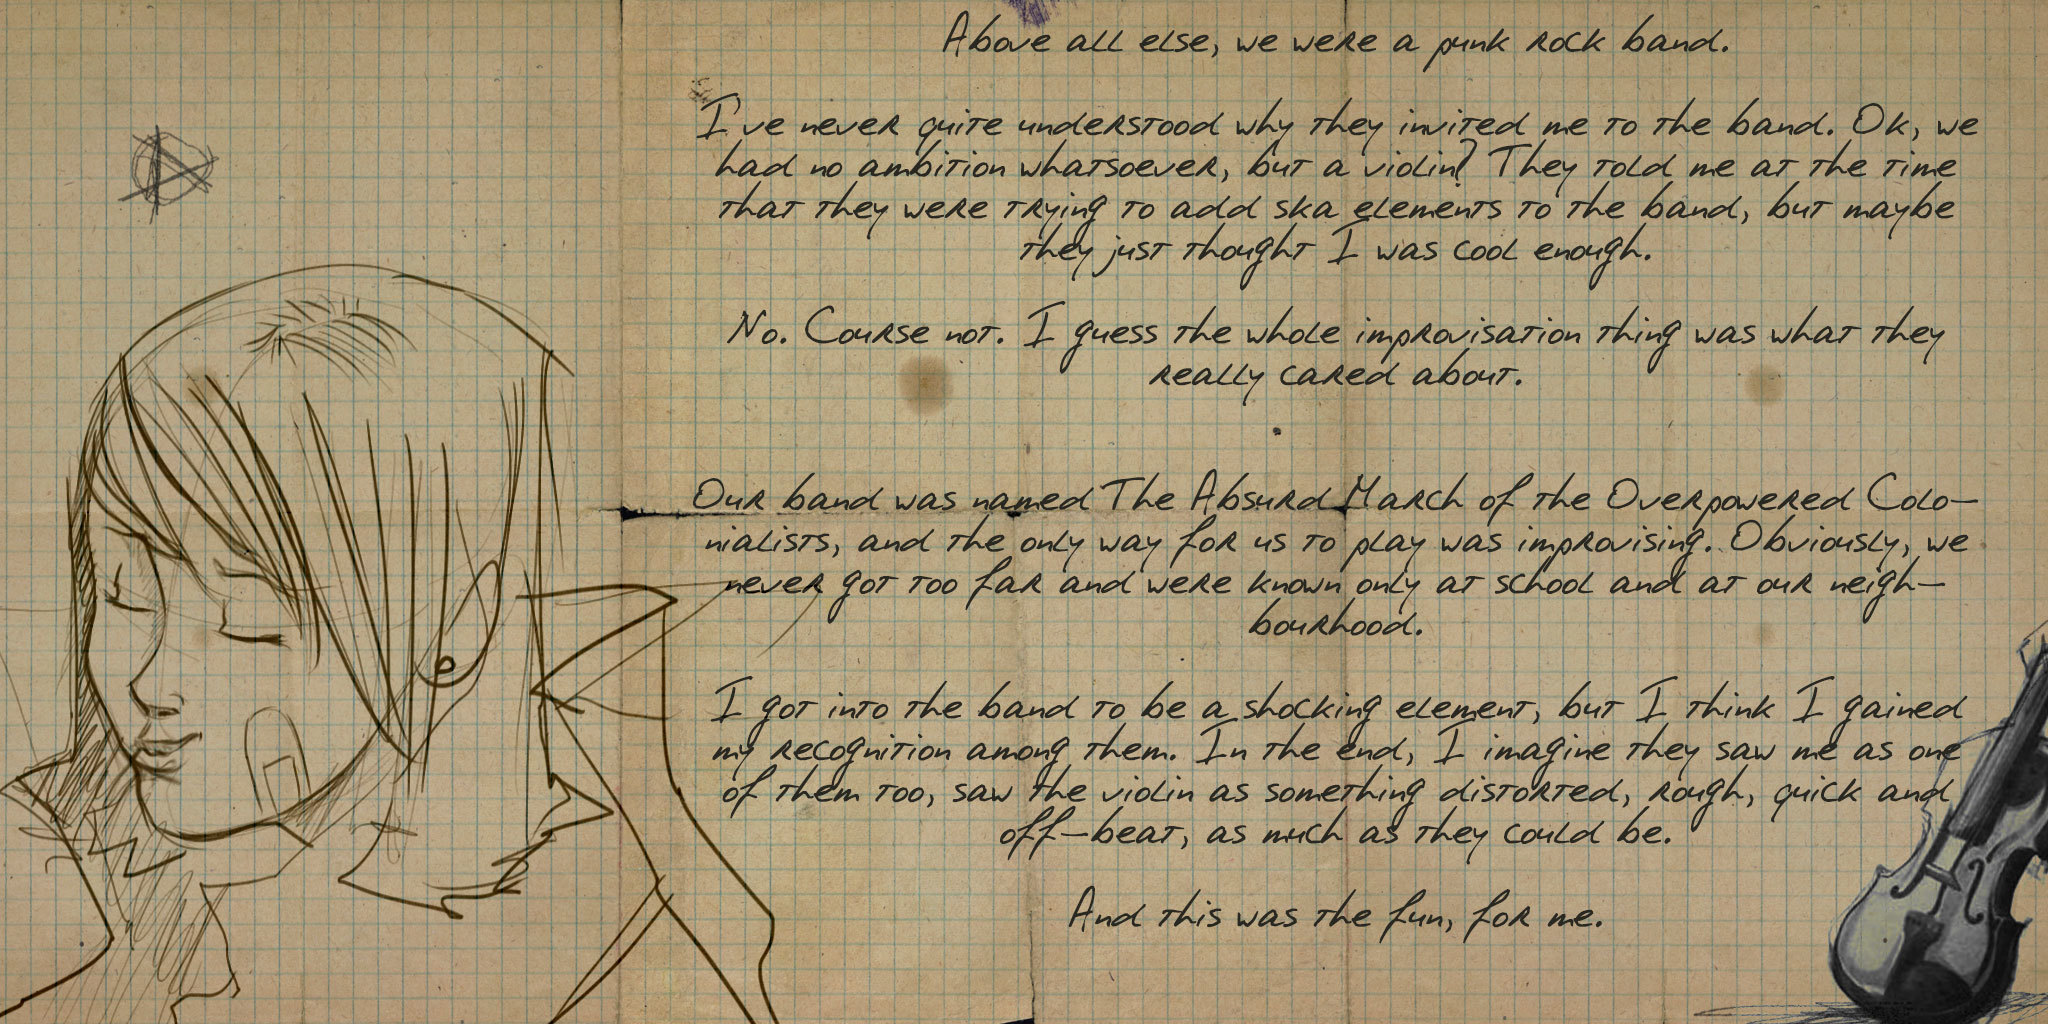 Above all else, we were a punk rock band.
I've never quite understood why they invited me to the band. Ok, we
had no ambition whatsoever, but a violin? They told me at the time
that they were trying to add ska elements to the band, but maybe
they just thought I was cool enough.
No. Course not. I guess the whole improvisation thing was what they
really cared about.
Our band was named The Absurd March of the Overpowered Colo-
nialists, and the only way for us to play was improvising. Obviously, we
never got too far and were known only at school and at our neigh-
bourhood.
I got into the band to be a shocking element, but I think I gained
my recognition among them. In the end, I imagine they saw me as one
of them too, saw the violin as something distorted, rough, quick and
off-beat, as much as they could be.
And this was the fun, for me.